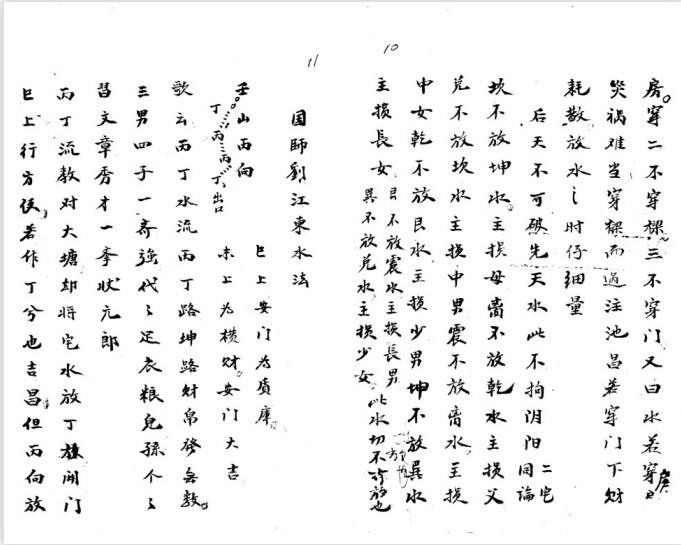 10
房穿二不穿樑三不穿门又曰水若穿房
災祸难当穿樑而過注池昌若穿门下财
耗散放水之时仔细量
后天不可破先天水此不拘阴阳二宅同論
坎不放坤水主损母离不放乾水主损父
兑不放坎水主损中男震不放离水主损
中女乾不放艮水主损少男坤不放巽水
主损長女艮不放震水主损長男巽不放兑水主损少女此水切不可放也
11
国師劉江東水法
壬山丙向
丁丙丙丁出口
巳上安门为質庫
未上为横财安门大吉
歌云丙丁水流丙丁路坤路财帛發無数
三男四子一齐强代々足衣粮兒孫个々
習文章秀才一拳状元郎
丙丁流教对大塘却将宅水放丁旅闭门
巳上行方便若作丁兮也吉昌但丙向放